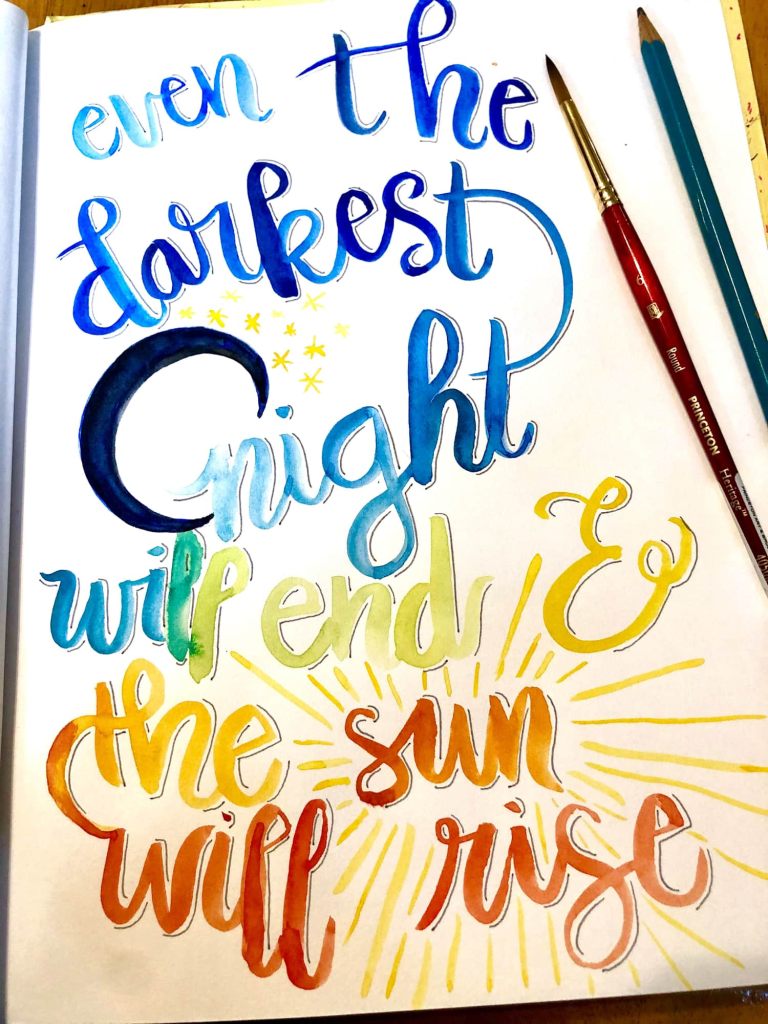 even the
darkest
night
will end &
the sun
will rise
6
Round
PRINCETON
Heritage™